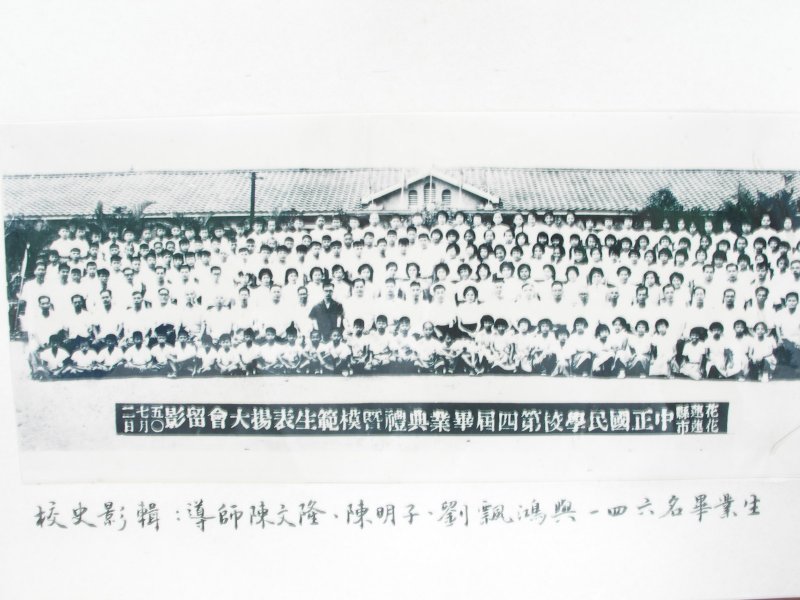 花蓮縣花蓮市中正國民學校第四屆畢業典禮暨模範生表揚大會留影 五〇七月二日
校史影輯：導師陳文隆、陳明子、劉飄鴻與一四六名畢業生